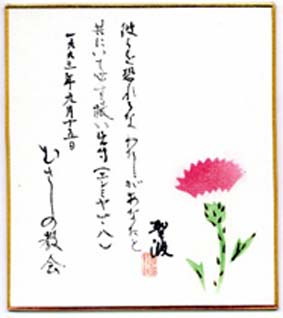 彼らを恐れるな わたしがあなたと
共にいて必ず救い出す(エレミヤ一・八)
一九九三年九月十五日
むさしの教会
聖波